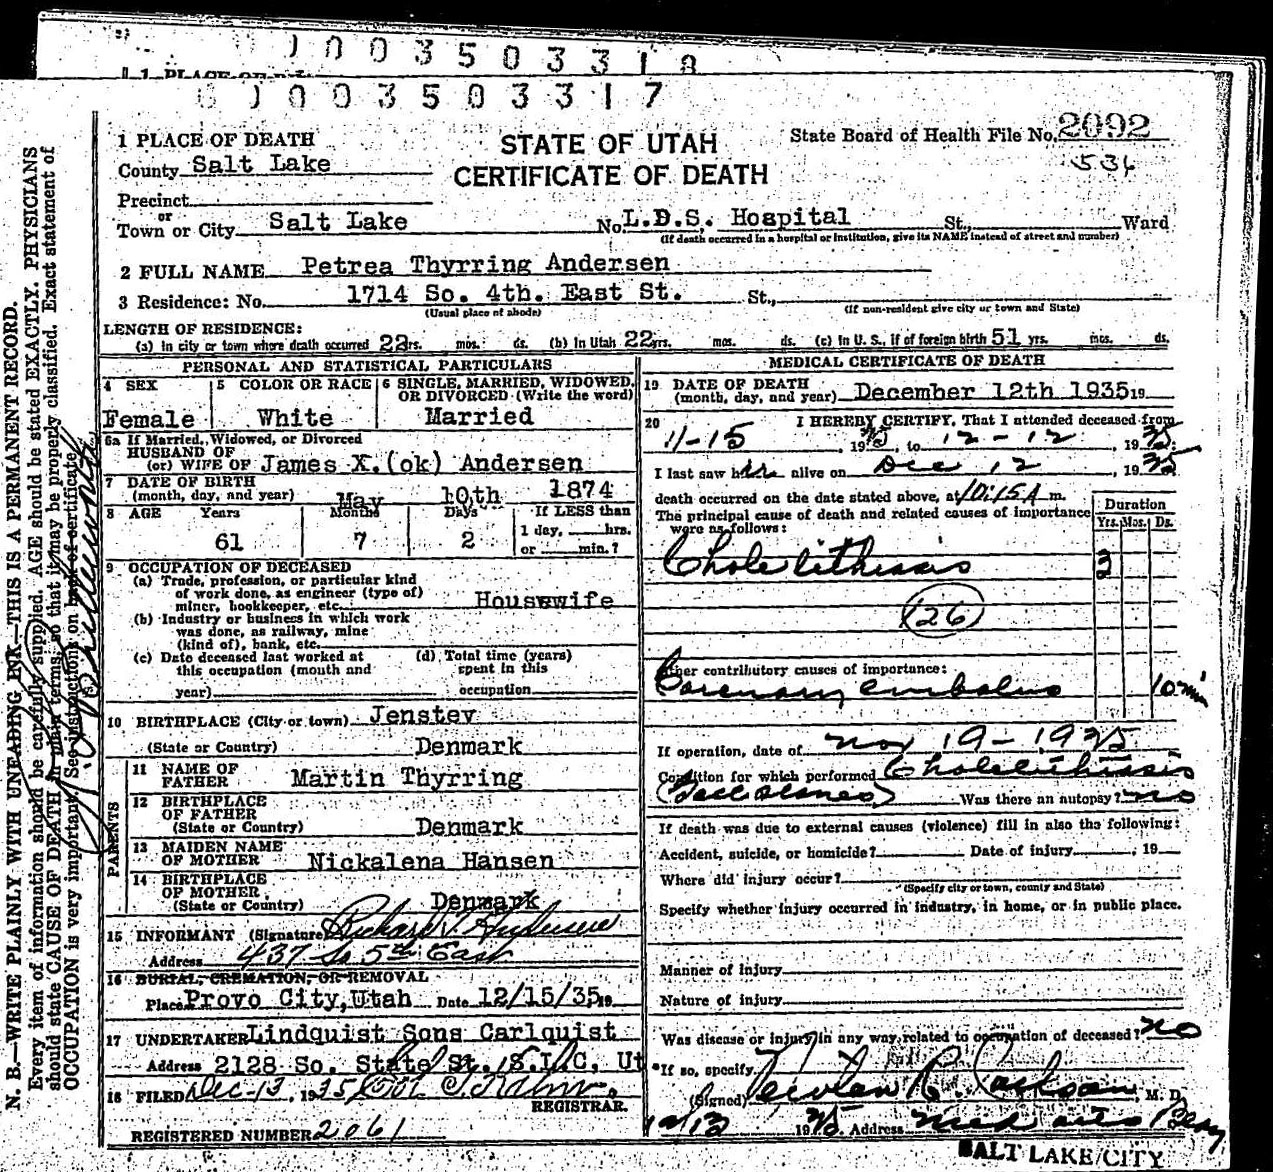 0 0 0 3 5 0 3 3 1 8
1 PLACE OF D
0 0 0 3 5 0 3 3 1 7
1 PLACE OF DEATH
STATE OF UTAH
CERTIFICATE OF DEATH
State Board of Health File No. 2092
536
County Salt Lake
Precinct
or
Town or City Salt Lake No. L.D.S. Hospital St., Ward
(If death occurred in a hospital or institution, give its NAME instead of street and number)
2 FULL NAME Petrea Thyrring Andersen
3 Residence: No. 1714 So. 4th. East St. St.,
(Usual place of abode) (If non-resident give city or town and State)
LENGTH OF RESIDENCE:
(a) In city or town where death occurred 22 yrs. mos. ds. (b) In Utah 22 yrs. mos. ds. (c) In U. S., if of foreign birth 51 yrs. mos. ds.
PERSONAL AND STATISTICAL PARTICULARS
4 SEX
Female
5 COLOR OR RACE
White
6 SINGLE, MARRIED, WIDOWED,
OR DIVORCED (Write the word)
Married
6a If Married, Widowed, or Divorced
HUSBAND OF
(or) WIFE OF James X.(ok) Andersen
7 DATE OF BIRTH
(month, day, and year) May 10th 1874
8 AGE Years Months Days If LESS than
61 7 2 1 day, hrs.
or min.?
9 OCCUPATION OF DECEASED
(a) Trade, profession, or particular kind
of work done, as engineer (type of)
miner, bookkeeper, etc. Housewife
(b) Industry or business in which work
was done, as railway, mine
(kind of), bank, etc.
(c) Date deceased last worked at
this occupation (month and
year)
(d) Total time (years)
spent in this
occupation
10 BIRTHPLACE (City or town) Jenstev
(State or Country) Denmark
PARENTS
11 NAME OF
FATHER Martin Thyrring
12 BIRTHPLACE
OF FATHER
(State or Country) Denmark
13 MAIDEN NAME
OF MOTHER Nickalena Hansen
14 BIRTHPLACE
OF MOTHER
(State or Country) Denmark
15 INFORMANT (Signature) Richard V. Andersen
Address 437 So 5th East
16 BURIAL, CREMATION, OR REMOVAL
Place Provo City, Utah Date 12/15/35 19
17 UNDERTAKER Lindquist Sons Carlquist
Address 2128 So. State St. S.L.C. Ut
18 FILED Dec-13, 1935
REGISTRAR.
REGISTERED NUMBER 2061
MEDICAL CERTIFICATE OF DEATH
19 DATE OF DEATH
(month, day, and year) December 12th 1935 19
20 I HEREBY CERTIFY, That I attended deceased from
11-15, 1935, to 12-12, 1935.
I last saw her alive on Dec 12, 1935
death occurred on the date stated above, at 10:15 A m.
The principal cause of death and related causes of importance
were as follows:
Duration
Yrs. Mos. Ds.
Cholelithiasis 3
126
Other contributory causes of importance:
Coronary embolus 10 min
If operation, date of Nov 19-1935
Condition for which performed Cholelithiasis
(Gall stones) Was there an autopsy? no
If death was due to external causes (violence) fill in also the following:
Accident, suicide, or homicide? Date of injury , 19
Where did injury occur?
(Specify city or town, county and State)
Specify whether injury occurred in industry, in home, or in public place.
Manner of injury
Nature of injury
Was disease or injury in any way related to occupation of deceased? no
If so, specify
(Signed) M. D.
12/13 1935. Address Med arts Bldg
SALT LAKE CITY
N. B.—WRITE PLAINLY WITH UNFADING INK—THIS IS A PERMANENT RECORD.
Every item of information should be carefully supplied. AGE should be stated EXACTLY. PHYSICIANS
should state CAUSE OF DEATH in plain terms, so that it may be properly classified. Exact statement of
OCCUPATION is very important. See instructions on back of certificate.